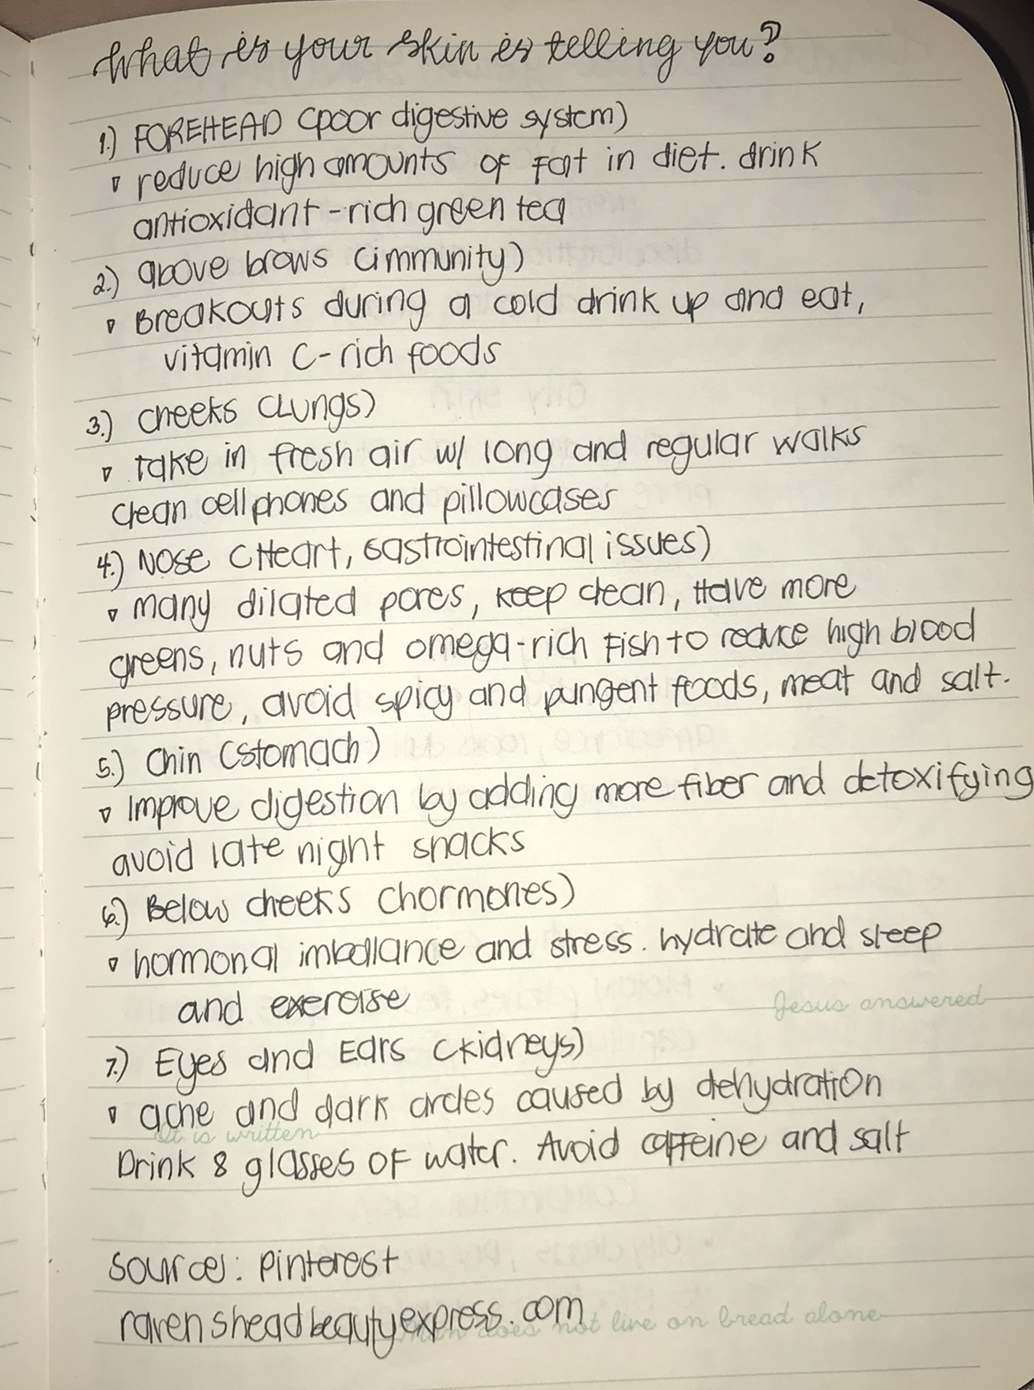 What is your skin is telling you?
1.) FOREHEAD (poor digestive system)
▿ reduce high amounts of fat in diet. drink
antioxidant-rich green tea
2.) above brows (immunity)
▿ Breakouts during a cold drink up and eat,
vitamin C-rich foods
3.) cheeks (Lungs)
▿ take in fresh air w/ long and regular walks
clean cellphones and pillowcases
4.) Nose (Heart, Gastrointestinal issues)
▿ many dilated pores, keep clean, Have more
greens, nuts and omega-rich fish to reduce high blood
pressure, avoid spicy and pungent foods, meat and salt.
5.) Chin (stomach)
▿ Improve digestion by adding more fiber and detoxifying
avoid late night snacks
6.) Below cheeks (hormones)
▿ hormonal imbalance and stress. hydrate and sleep
and exercise
Jesus answered
7.) Eyes and Ears (kidneys)
▿ acne and dark circles caused by dehydration
It is written
Drink 8 glasses of water. Avoid caffeine and salt
sources: Pinterest
ravensheadbeautyexpress.com
does not live on bread alone